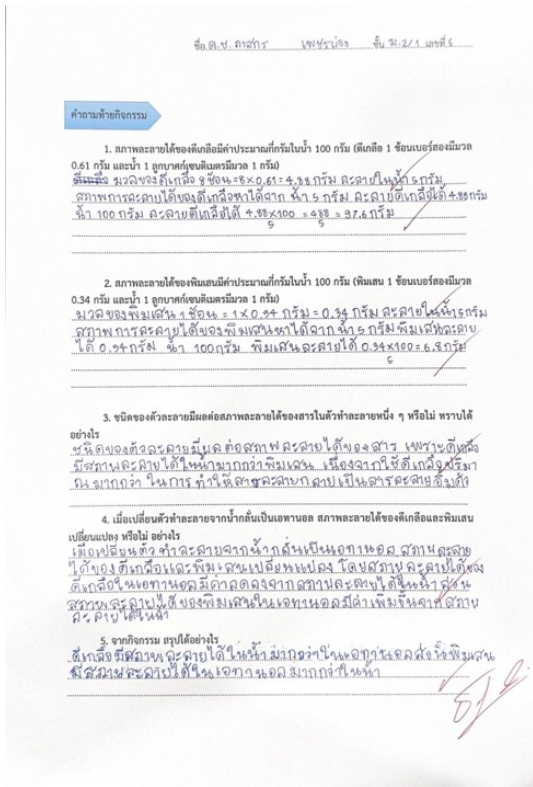 ชื่อ ด.ช. ภาสกร เพชรผ่อง ชั้น ม.2/1 เลขที่ 6
คำถามท้ายกิจกรรม
1. สภาพละลายได้ของดีเกลือมีค่าประมาณกี่กรัมในน้ำ 100 กรัม (ดีเกลือ 1 ช้อนเบอร์สองมีมวล
0.61 กรัม และน้ำ 1 ลูกบาศก์เซนติเมตรมีมวล 1 กรัม)
ดีเกลือ มวลของดีเกลือ 8 ช้อน = 8 × 0.61 = 4.88 กรัม ละลายในน้ำ 5 กรัม
สภาพการละลายได้ของดีเกลือหาได้จาก น้ำ 5 กรัม ละลายดีเกลือได้ 4.88 กรัม
น้ำ 100 กรัม ละลายดีเกลือได้ 4.88×100 = 488 = 97.6 กรัม
5 5
2. สภาพละลายได้ของพิมเสนมีค่าประมาณกี่กรัมในน้ำ 100 กรัม (พิมเสน 1 ช้อนเบอร์สองมีมวล
0.34 กรัม และน้ำ 1 ลูกบาศก์เซนติเมตรมีมวล 1 กรัม)
มวลของพิมเสน 1 ช้อน = 1 × 0.34 กรัม = 0.34 กรัม ละลายในน้ำ 5 กรัม
สภาพการละลายได้ของพิมเสนหาได้จาก น้ำ 5 กรัม พิมเสนละลาย
ได้ 0.34 กรัม น้ำ 100 กรัม พิมเสนละลายได้ 0.34×100 = 6.8 กรัม
5
3. ชนิดของตัวละลายมีผลต่อสภาพละลายได้ของสารในตัวทำละลายหนึ่ง ๆ หรือไม่ ทราบได้
อย่างไร
ชนิดของตัวละลายมีผลต่อสภาพละลายได้ของสาร เพราะดีเกลือ
มีสภาพละลายได้ในน้ำมากกว่าพิมเสน เนื่องจากใช้ดีเกลือปริมา
ณมากกว่า ในการทำให้สารละลายกลายเป็นสารละลายอิ่มตัว
4. เมื่อเปลี่ยนตัวทำละลายจากน้ำกลั่นเป็นเอทานอล สภาพละลายได้ของดีเกลือและพิมเสน
เปลี่ยนแปลง หรือไม่ อย่างไร
เมื่อเปลี่ยนตัวทำละลายจากน้ำกลั่นเป็นเอทานอล สภาพละลาย
ได้ของดีเกลือและพิมเสนเปลี่ยนแปลง โดยสภาพละลายได้ของ
ดีเกลือในเอทานอลมีค่าลดลงจากสภาพละลายได้ในน้ำ ส่วน
สภาพละลายได้ของพิมเสนในเอทานอลมีค่าเพิ่มขึ้นจากสภาพ
ละลายได้ในน้ำ
5. จากกิจกรรม สรุปได้อย่างไร
ดีเกลือมีสภาพละลายได้ในน้ำมากกว่าในเอทานอลส่วนพิมเสน
มีสภาพละลายได้ในเอทานอลมากกว่าในน้ำ